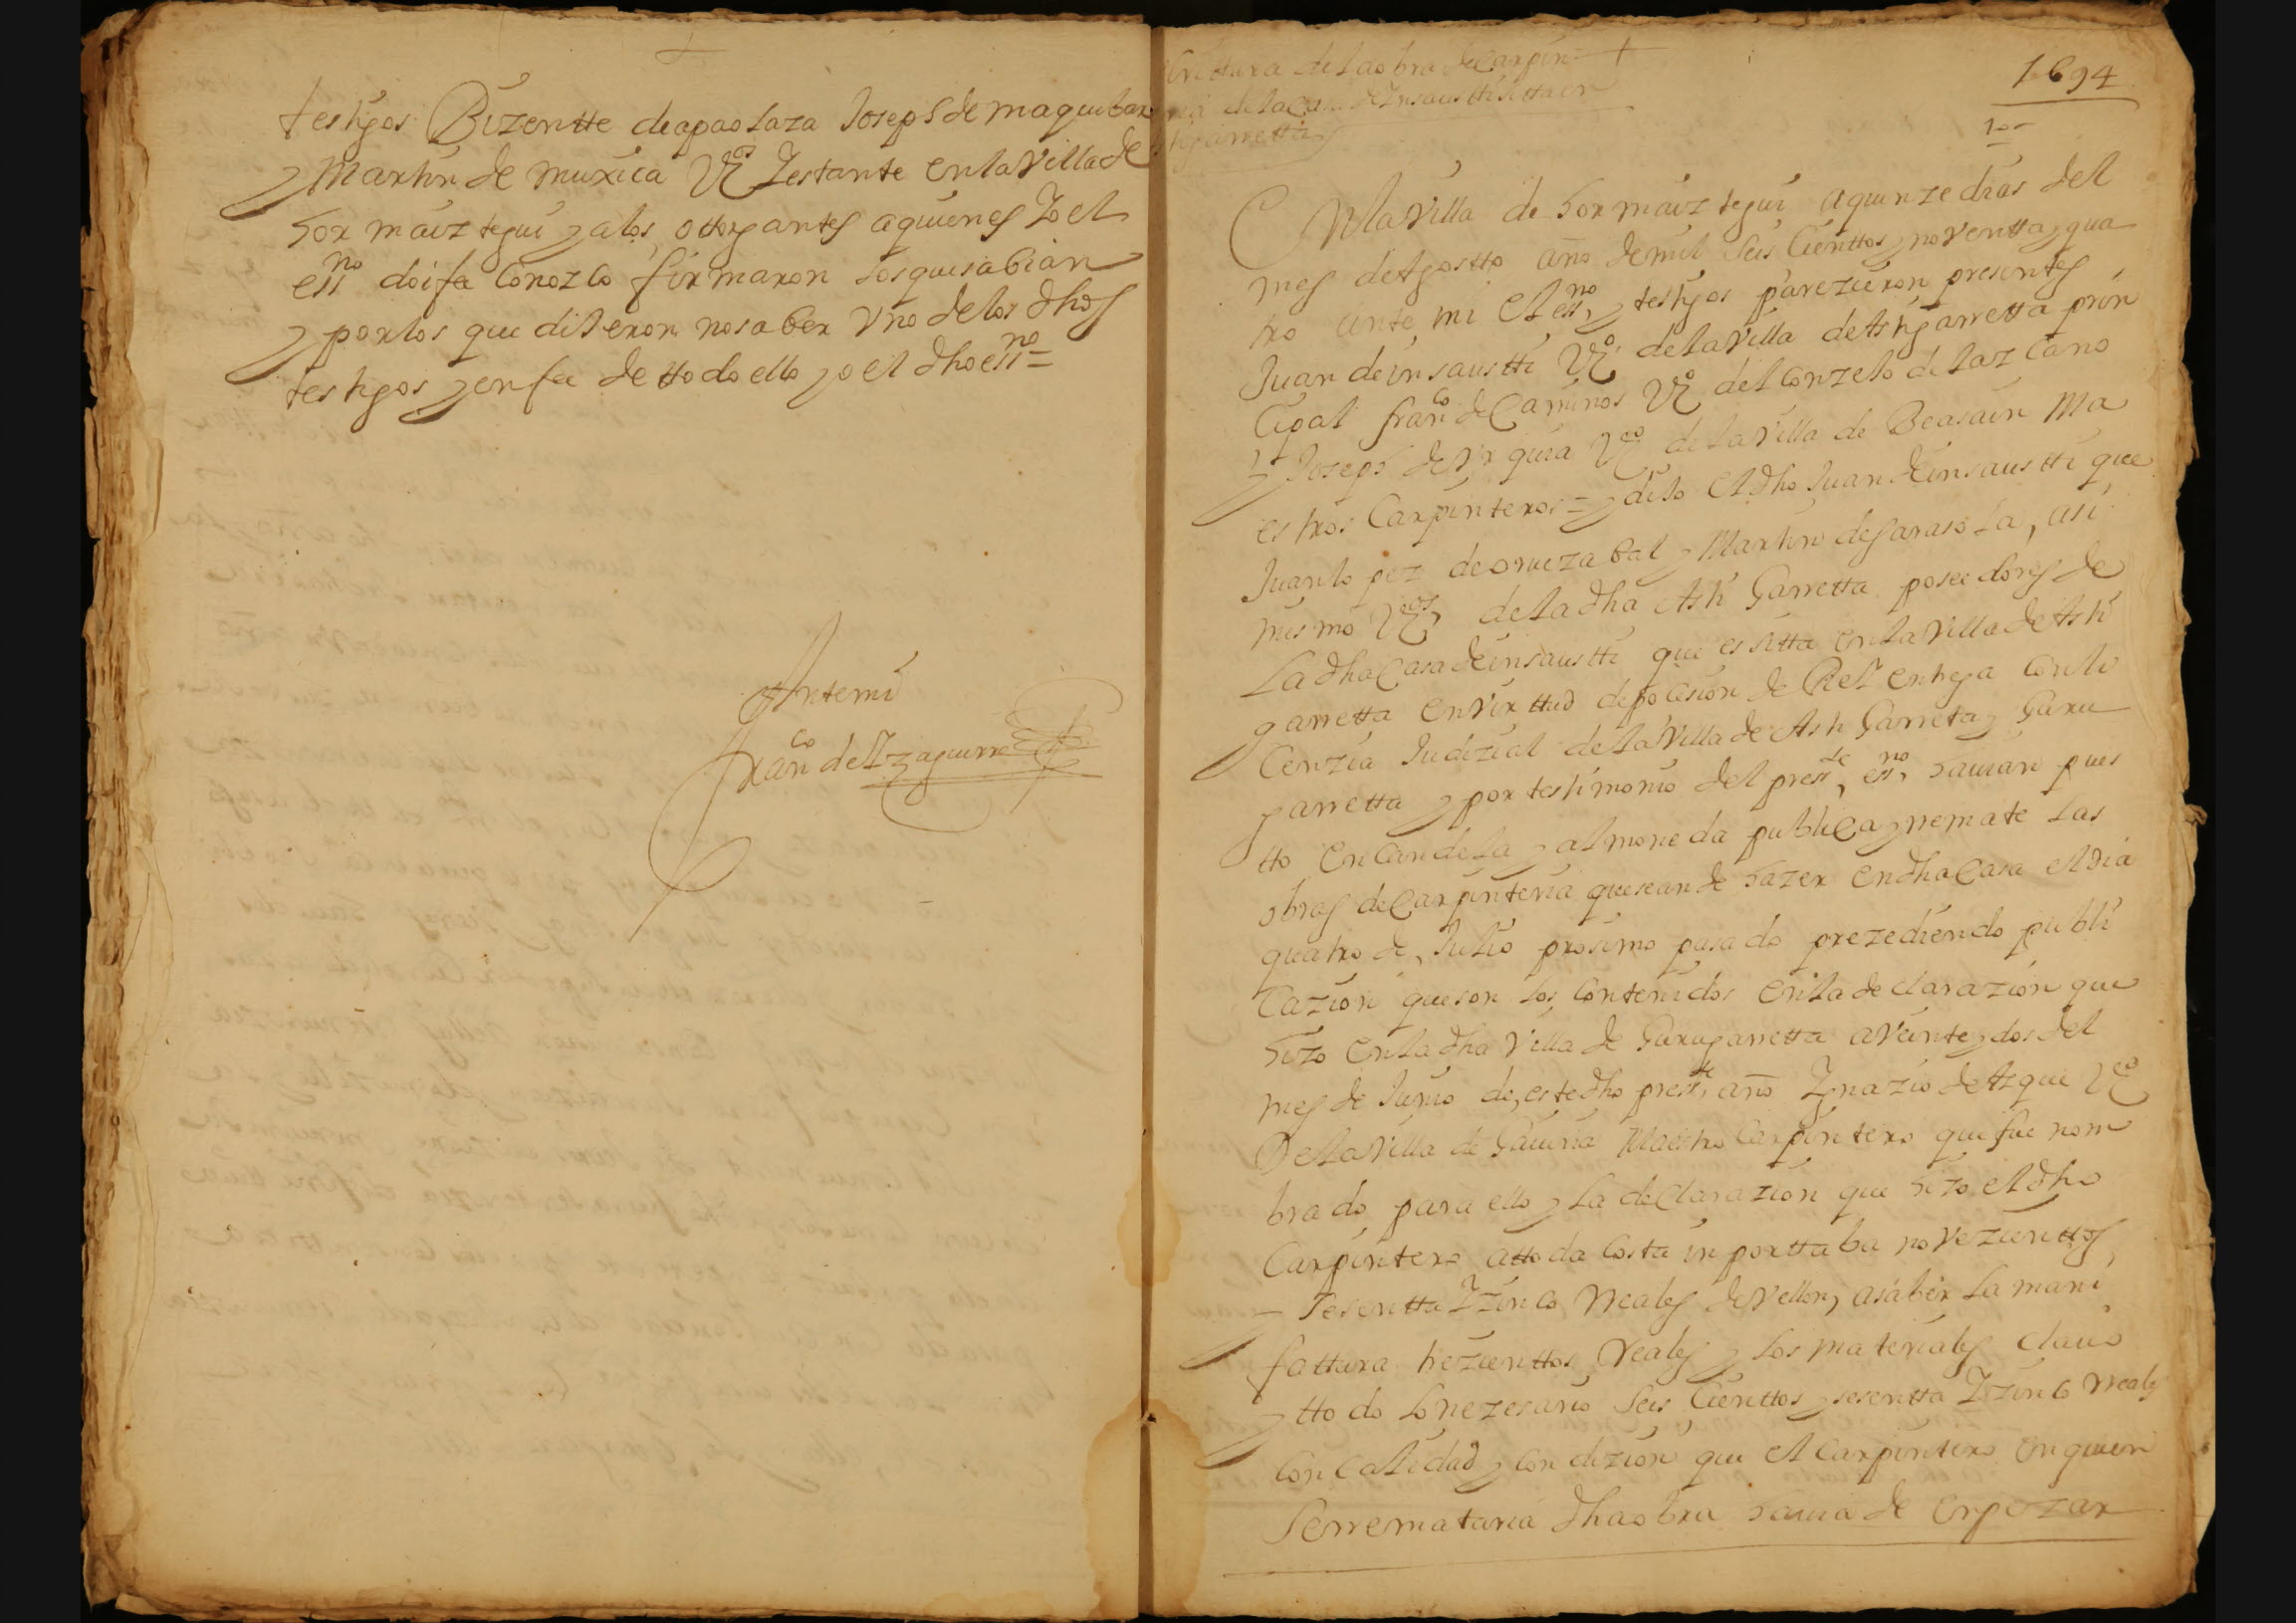 testigos Bizentte de apaolaza Joseph de maquibar
y Martin de muxica Vᵒˢ Y estante en la Villa de
hormaiztegui y a los ottorgantes a quienes Yo el
essⁿᵒ doi fe Conozco firmaron los que sabian
y por los que dijeron no saber Vno de los dhos
testigos y en fee de ttodo ello yo el dho essⁿᵒ =
Ante mi
Franᶜᵒ de Yzaguirre
de la obra de Carpin
de la Casa de Insausti sitta en
garretta
1694
En la Villa de hormaiztegui a quinze dias del
mes de Agostto año de mil seis Cienttos y noventta y qua
tro ante mi el essⁿᵒ y testigos parezieron presentes
Juan de insaustti Vᵒ de la Villa de Astigarretta prin
cipal franᶜᵒ de Caminos Vᵒ del Conzejo de lazcano
y Joseph de Vrquia Vᵒ de la Villa de Beasain Ma
estros Carpinteros = y dijo el dho Juan de insaustti que
Juan lopez de oruezabal y Martin de Garasola, asi
mismo Vᵒˢ de la dha Asti Garretta poseedores de
la dha Casa de insaustti que es sitta en la Villa de Asti
garretta en Virttud de posesion de Rel entrega con li
Cenzia Judizial de la Villa de Asti Garreta y Guru
garretta y por testimonio del pressᵗᵉ essⁿᵒ hauian pues
tto en Candela y almoneda publica y rremate las
obras de Carpinteria que se an de hazer en dha Casa el dia
quatro de Julio prosimo pasado prezediendo publi
cazion que son los contenidos en la declarazion que
hizo en la dha Villa de Gurugarretta a Veinte y dos del
mes de Junio de este dho pressᵗᵉ año Ygnazio de Azque Vᵒ
De la Villa de Gauiria Maestro Carpintero que fue nom
brado para ello y la declarazion que hizo el dho
Carpintero a ttoda Costa inporttaba novezienttos
y Sesentta Y zinco rreales de Vellon, a saber la mani
fattura trezienttos rreales y los materiales claus
y ttodo lo nezesario seis Cienttos y sesentta Y zinco rreales
con Calidad y condizion que el Carpintero en quien
se rremataria dha obra hauia de enpezar